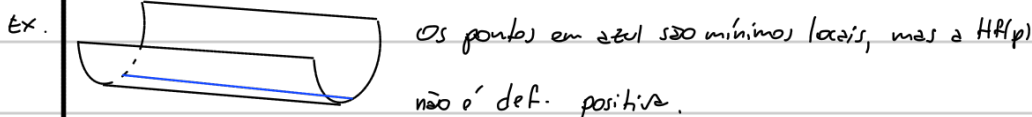 Ex.
Os pontos em azul são mínimos locais, mas a Hf(p)
não é def. positiva.